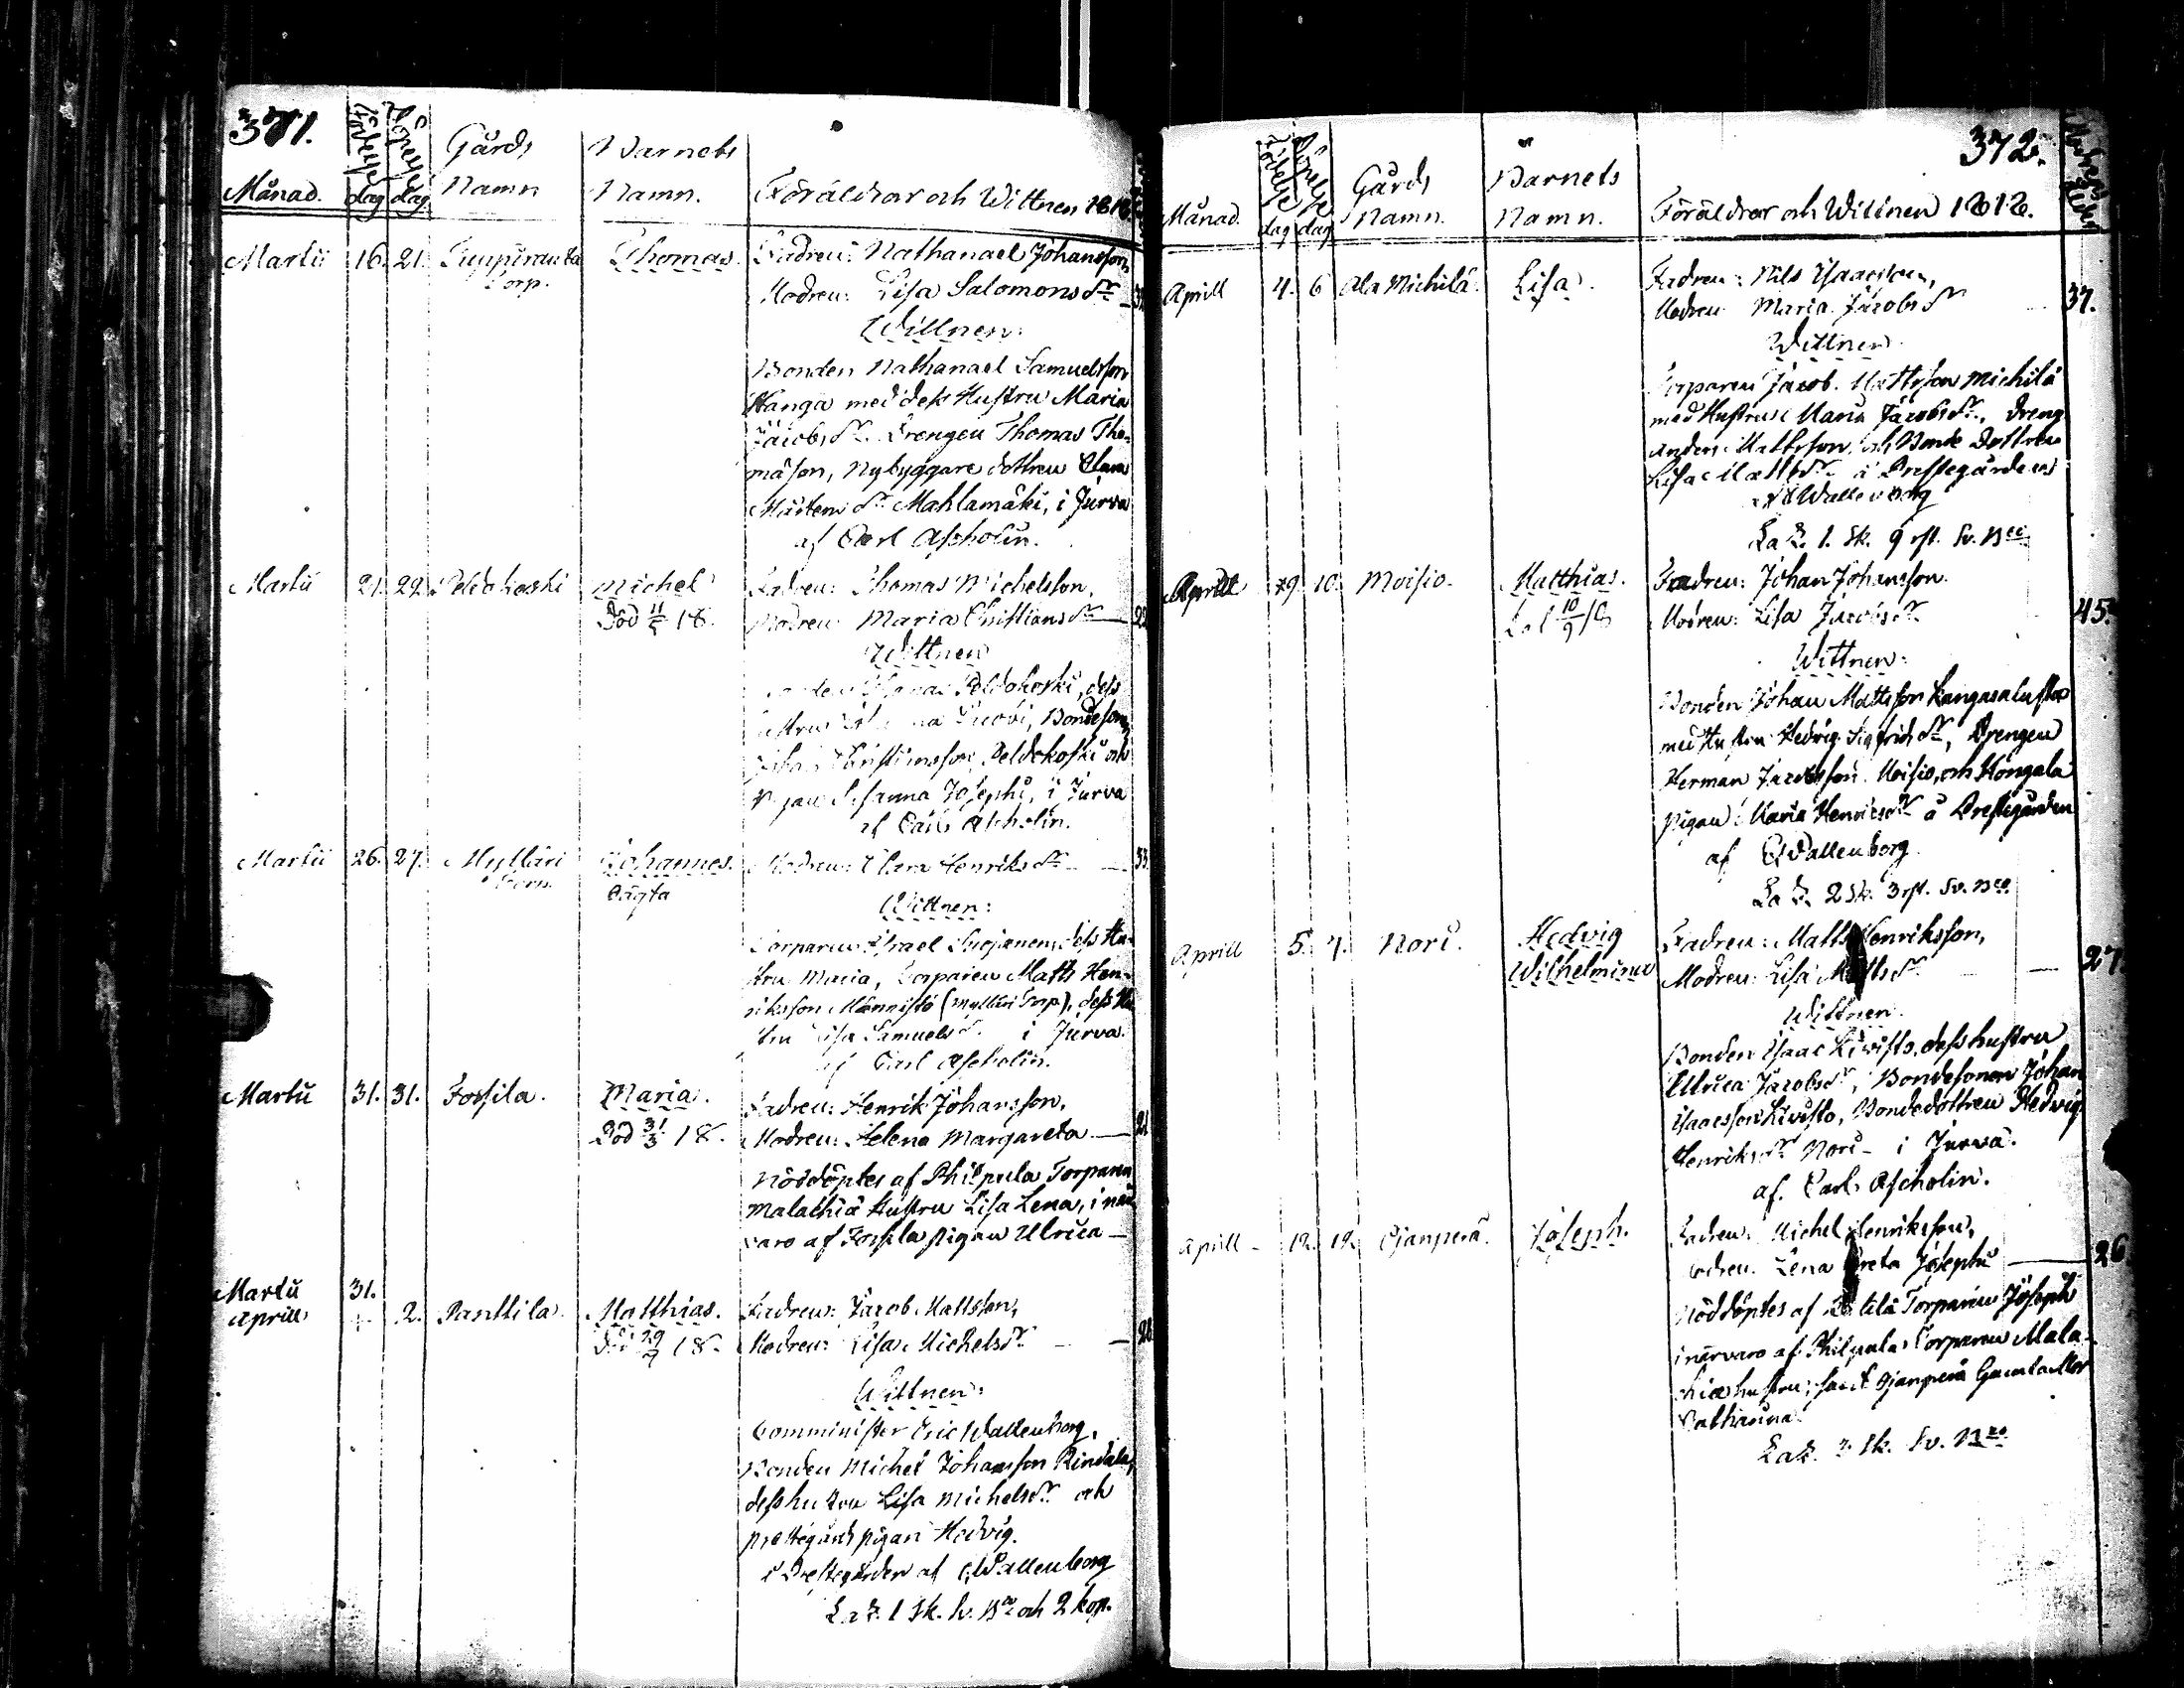 371.
Månad. Födelse dag Döpelse dag Gårds Namn Barnets Namn. Föräldrar och Wittnen 1818.
Martii 16. 21. Torp. Thomas. Fadren: Nathanael Johansson,
Modren: Lisa Salomons dr
Wittnen:
Bonden Nathanael Samuelsson
Hanga med dess Hustru Maria
Jacobs dr. Drengen Thomas Tho-
masson, Nybyggare dottren Clara
Mårtens dr Mahlamäki, i Jurva
af Carl Ascholin.
Martii 21. 29. Peldokoski Michel Fadren: Thomas Michelsson,
Död 11/5 18. Modren: Maria Christians dr
Wittnen
Peldokoski, dess
Bondeson
Christiansson Peldokoski och
Susanna Josephi, i Jurva
af Carl Ascholin.
Martii 26. 27. Mylläri Torp. Johannes. Modren: Clara Henriks dr 33.
Oägta
Wittnen:
Torparen Israel dess Hu-
stru Maria, Torparen Matts Hen-
riksson Männistö (Mylläri Torp), dess Hu
stru Lisa Samuels dr. i Jurva.
af Carl Ascholin.
Martii 31. 31. Forsila. Maria. Fadren: Henrik Johansson,
Död 31/3 18. Modren: Helena Margareta
Nöddöptes af Philpula Torparen
Malachiæ Hustru Lisa Lena, i när
varo af Forsila pigan Ulrica
Martii 31.
Aprill 2. Panttila. Matthias. Fadren: Jacob Mattsson,
Död 29/7 18. Modren: Lisa Michels dr
Wittnen:
Comminister Eric Wallenborg,
Bonden Michel Johansson Rindala,
dess hustru Lisa Michels dr och
prestegårds pigan Hedvig.
i Prestegården af E Wallenborg
La z. 1 sk. Sv. Bco och 2 kop.
372.
Månad. Födelse dag Döpelse dag Gårds Namn. Barnets Namn. Föräldrar och Wittnen 1818. Modrens ålder
Aprill 4. 6 Ala Michilä. Lisa. Fadren: Nils Isaacsson,
Modren Maria Jacobs dr 37.
Wittnen
Torparen Jacob Mattsson Michilä
med Hustru Maria Jacobs dr, Dreng
Anders Mattsson, och Bonde Dottren
Lisa Matts dr i Prestegården
af E Wallenborg
La z. 1. sk. 9 rst. Sv. Bco
Aprill 9. 10. Moisio. Matthias. Fadren: Johan Johansson.
10/9 18 Modren: Lisa Jacobs dr 45.
Wittnen:
Bonden Johan Mattsson Kangasalusta
med Hustru Hedvig Sigfrids dr, Drengen
Herman Jacobsson Moisio, och Hongala
pigan Maria Henrics dr å Prestgården
af E Wallenborg
La z. 2 sk. 3 rst. Sv. Bco
Aprill 5. 7. Nori. Hedvig Fadren: Matts Henriksson,
Wilhelmina Modren: Lisa Matts dr 27
Wittnen.
Bonden Isaac Kivistö, dess hustru
Ulrica Jacobs dr, Bondesonen Johan
Isaacsson Kivistö, Bondedottren Hedvig
Henriks dr Nori i Jurva.
af. Carl Ascholin.
Aprill 12. 12. Ojanperä. Joseph. Fadren: Michel Henriksson,
Modren: Lena Greta Josephi 26
Nöddöptes af Torparen Joseph
i närvaro af Philpula Torparen Mala-
chiæ hustru, samt Ojanperä Gamla Mor
Catharina.
La z. 2. sk. Sv. Bco